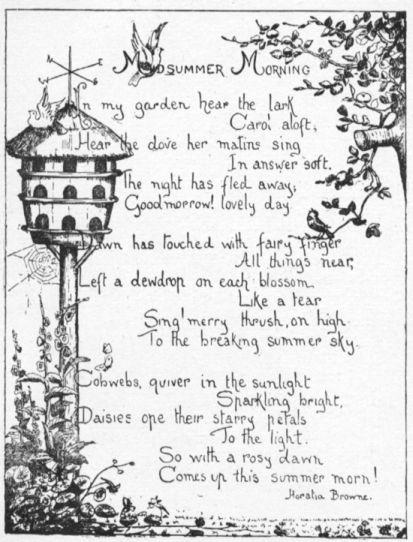 N
W
E
S
Midsummer Morning
In my garden hear the lark
Carol aloft;
Hear the dove her matins sing
In answer soft.
The night has fled away;
Goodmorrow! lovely day.
Dawn has touched with fairy finger
All things near,
Left a dewdrop on each blossom
Like a tear
Sing! merry thrush, on high
To the breaking summer sky.
Cobwebs, quiver in the sunlight
Sparkling bright,
Daisies ope their starry petals
To the light.
So with a rosy dawn
Comes up this summer morn!
Horatia Browne.